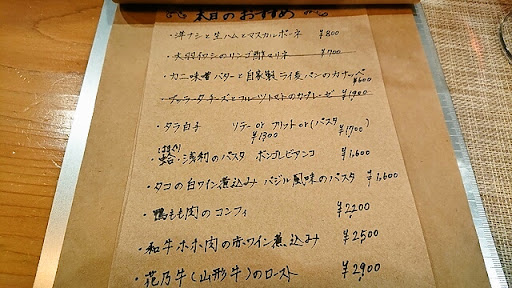 本日のおすすめ
・洋ナシと生ハムとマスカルポーネ ¥800
・大羽イワシのリンゴ酢マリネ ¥700
・カニ味噌バターと自家製ライ麦パンのカナッペ ¥600
・ブッラータチーズとフルーツトマトのカプレーゼ ¥1,900
・タラ白子 ソテー or フリット or (パスタ
¥1300 ¥1,700)
(はまぐり)
・蛤・浅利のパスタ ボンゴレビアンコ ¥1,600
・タコの白ワイン煮込み バジル風味のパスタ ¥1,600
・鴨もも肉のコンフィ ¥2,200
・和牛ホホ肉の赤ワイン煮込み ¥2,500
・花乃牛(山形牛)のロースト ¥2,900